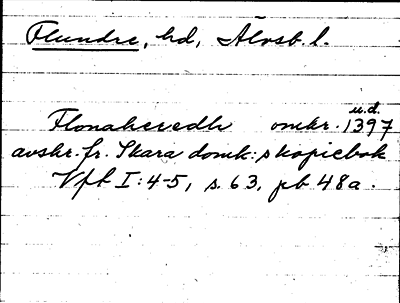 Flundre, hd, Älvsb. l.
u.d.
Flonaheredh omkr. 1397
avskr. fr. Skara domk:s kopiebok
Vft I:4-5, s. 63, pb 48a.